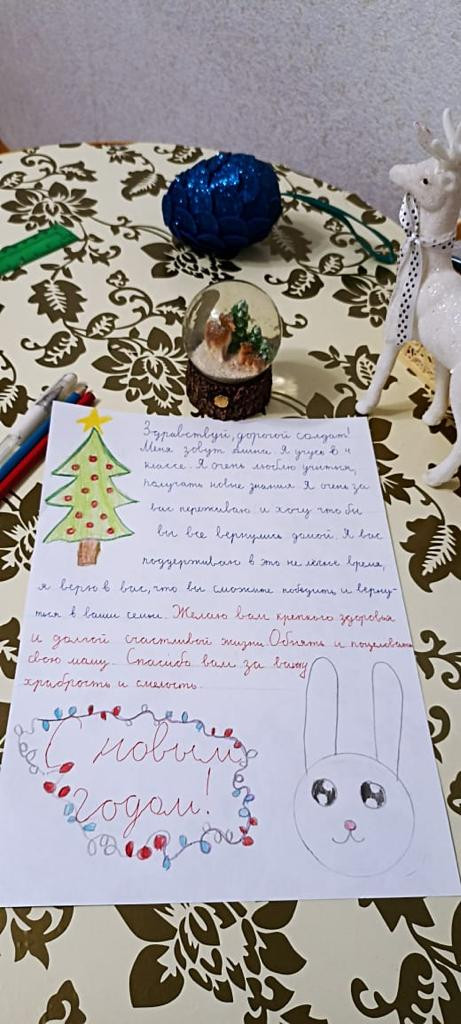 Здравствуй, дорогой солдат!
Меня зовут Алина. Я учусь в 4
классе. Я очень люблю учиться,
получать новые знания. Я очень за
вас переживаю и хочу что бы
вы все вернулись домой. Я вас
поддерживаю в это не лёгкое время,
я верю в вас, что вы сможите победить и верну-
ться в ваши семьи. Желаю вам крепкого здоровья
и долгой счастливой жизни. Обнять и поцеловать
свою маму. Спасибо вам за вашу
храбрость и смелость.
С новым
годом!